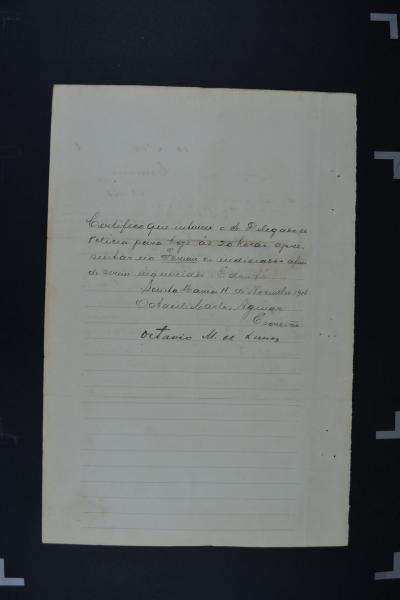 Certifico que intimei o sr. Delegado de
Policia para hoje ás 20 horas apre-
sentar no os indiciados afim
de serem inqueridos. Dou fé
Santa Maria 11 de Novembro
Octacilio Carlos Aguiar
Escrivão
Octavio M. de Lemos